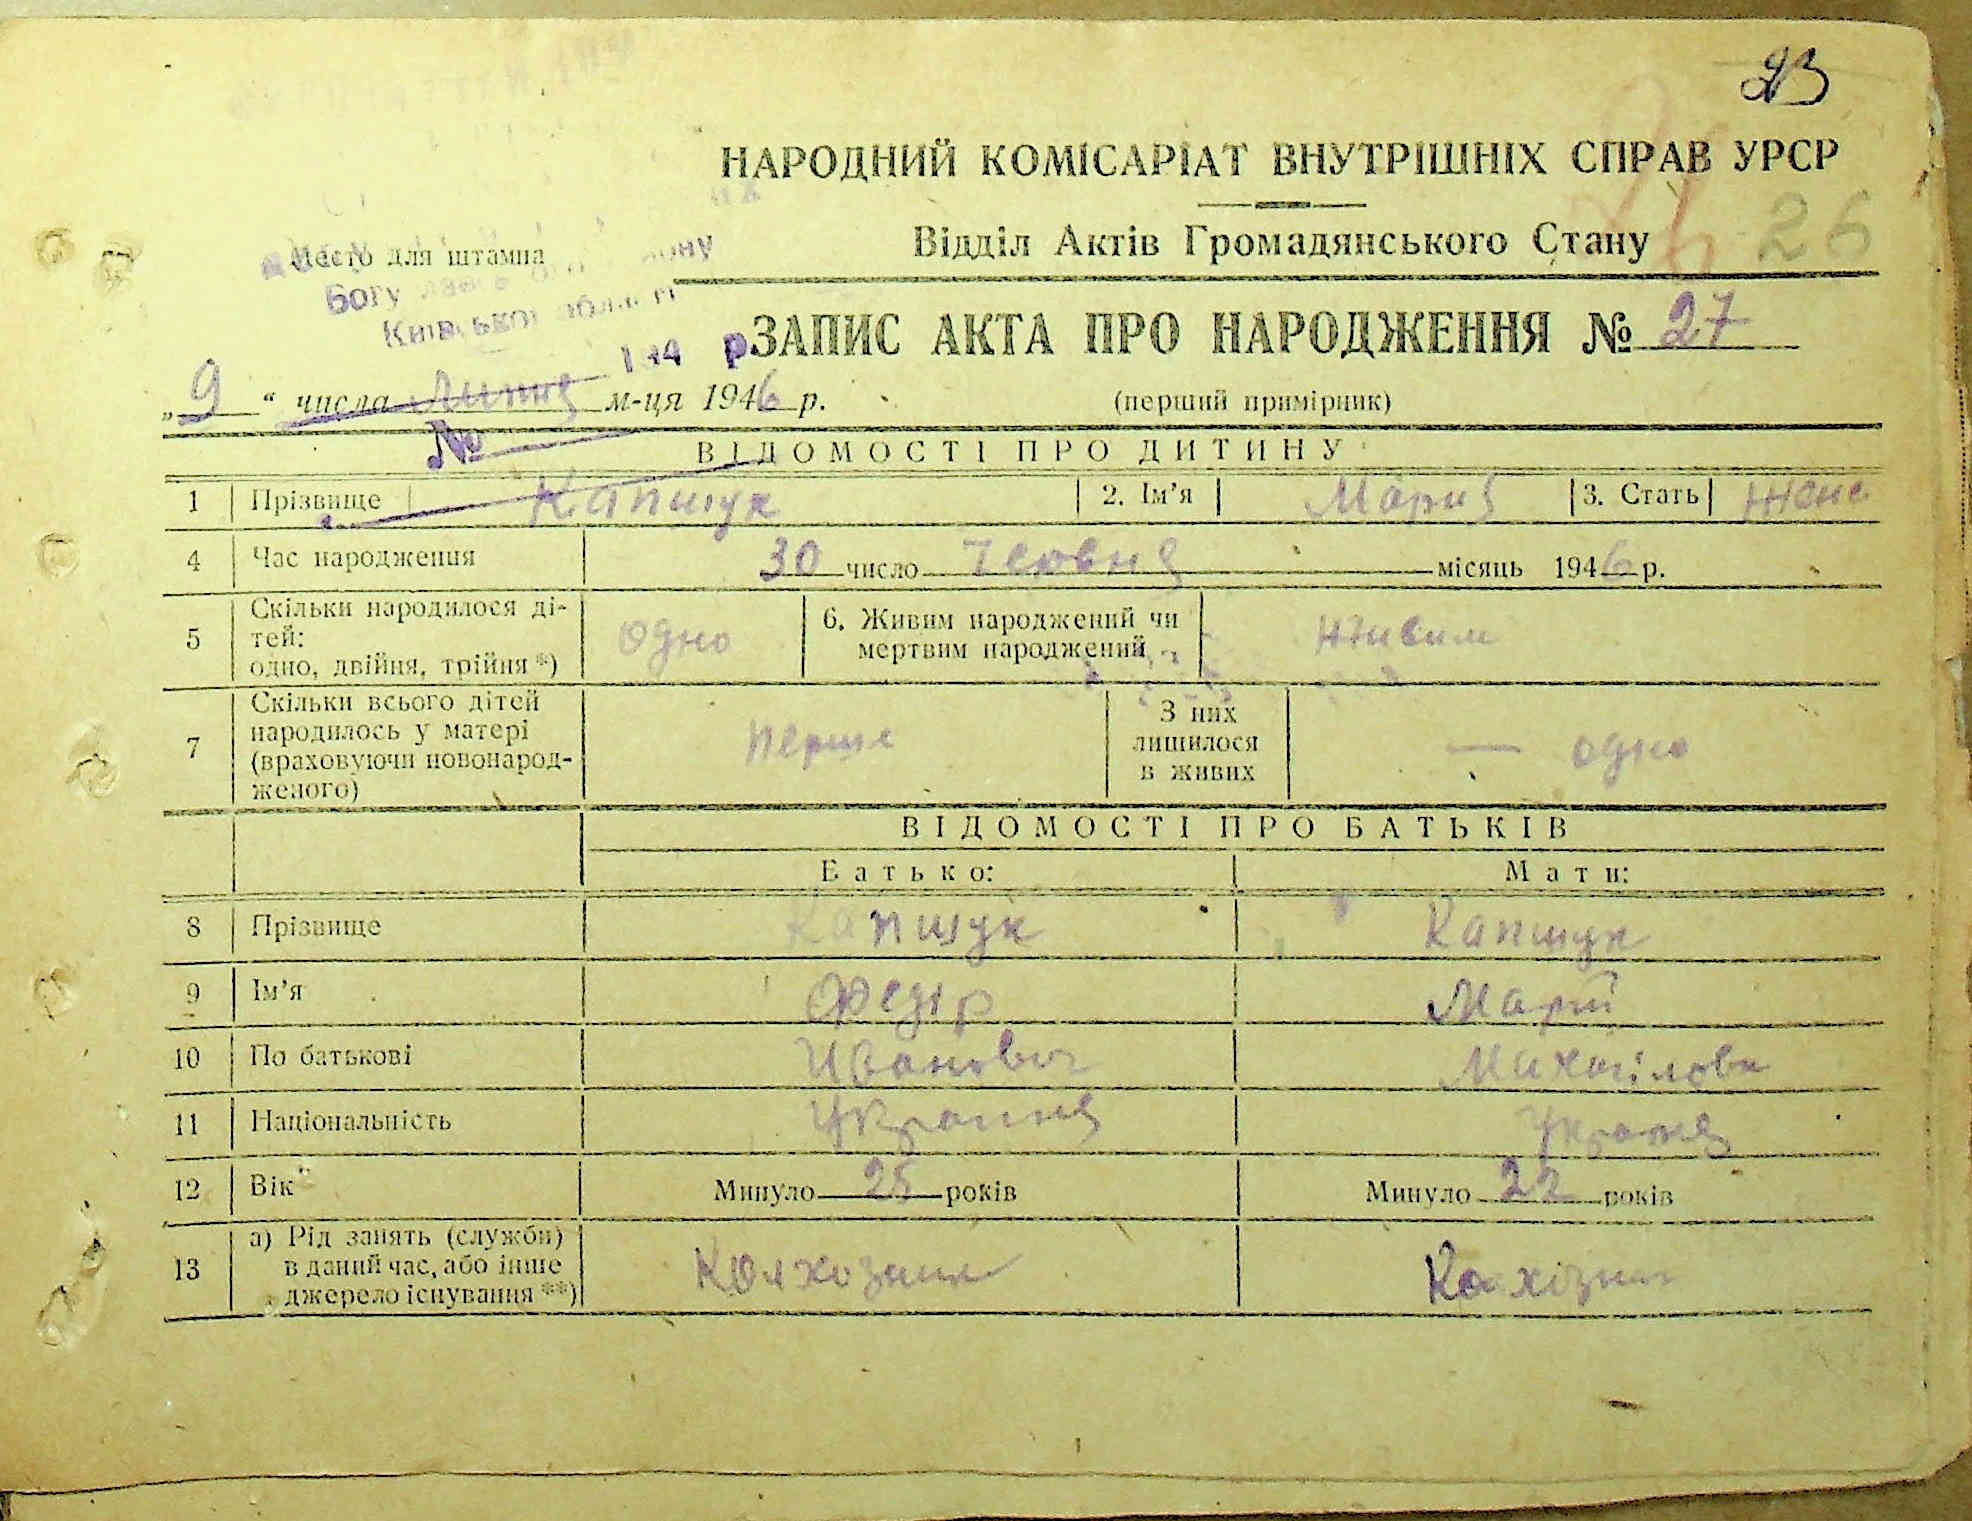 23
НАРОДНИЙ КОМІСАРІАТ ВНУТРІШНІХ СПРАВ УРСР
Відділ Актів Громадянського Стану
26
Место для штампа
Богу
Київської області
194 р
ЗАПИС АКТА ПРО НАРОДЖЕННЯ № 27
„9“ числа Липня м-ця 1946 р.
(перший примірник)
№
ВІДОМОСТІ ПРО ДИТИНУ
1 Прізвище Капшук 2. Ім’я Мария 3. Стать жено
4 Час народження 30 число Червня місяць 1946 р.
5 Скільки народилося ді-
тей:
одно, двійня, трійня *) одно 6. Живим народжений чи
мертвим народжений живим
7 Скільки всього дітей
народилось у матері
(враховуючи новонарод-
женого) перше З них
лишилося
в живих — одно
ВІДОМОСТІ ПРО БАТЬКІВ
Батько: Мати:
8 Прізвище Капшук Капшук
9 Ім’я Федір Марії
10 По батькові Иванович Михайловн
11 Національність
12 Вік Минуло 25 років Минуло 22 років
13 а) Рід занять (служби)
в даний час, або інше
джерело існування **)